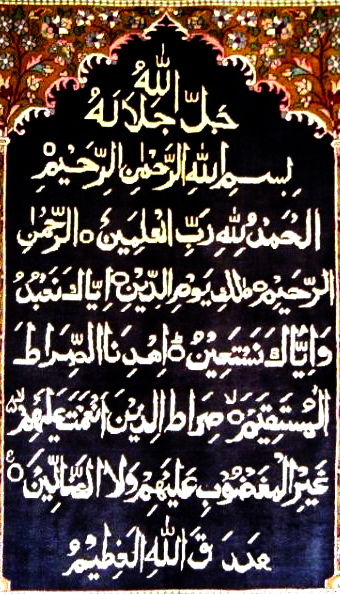 الله
جَلَّ جَلَالَهُ
بِسمِ اللهِ الرَّحْمٰنِ الرَّحِيْمِ
الحَمْدُ لِلهِ رَبِّ الْعٰلَمِيْنَ ۝ الرَّحْمٰنِ
الرَّحِيْمِ ۝ مٰلِكِ يَوْمِ الدِّيْنِ ۝ اِيَّاكَ نَعْبُدُ
وَاِيَّاكَ نَسْتَعِيْنُ ۝ اِهْدِنَا الصِّرَاطَ
الْمُسْتَقِيْمَ ۝ صِرَاطَ الَّذِيْنَ اَنْعَمْتَ عَلَيْهِمْ
غَيْرِ الْمَغْضُوْبِ عَلَيْهِمْ وَلَا الضَّالِّيْنَ ۝
صَدَقَ اللهُ الْعَظِيْمُ